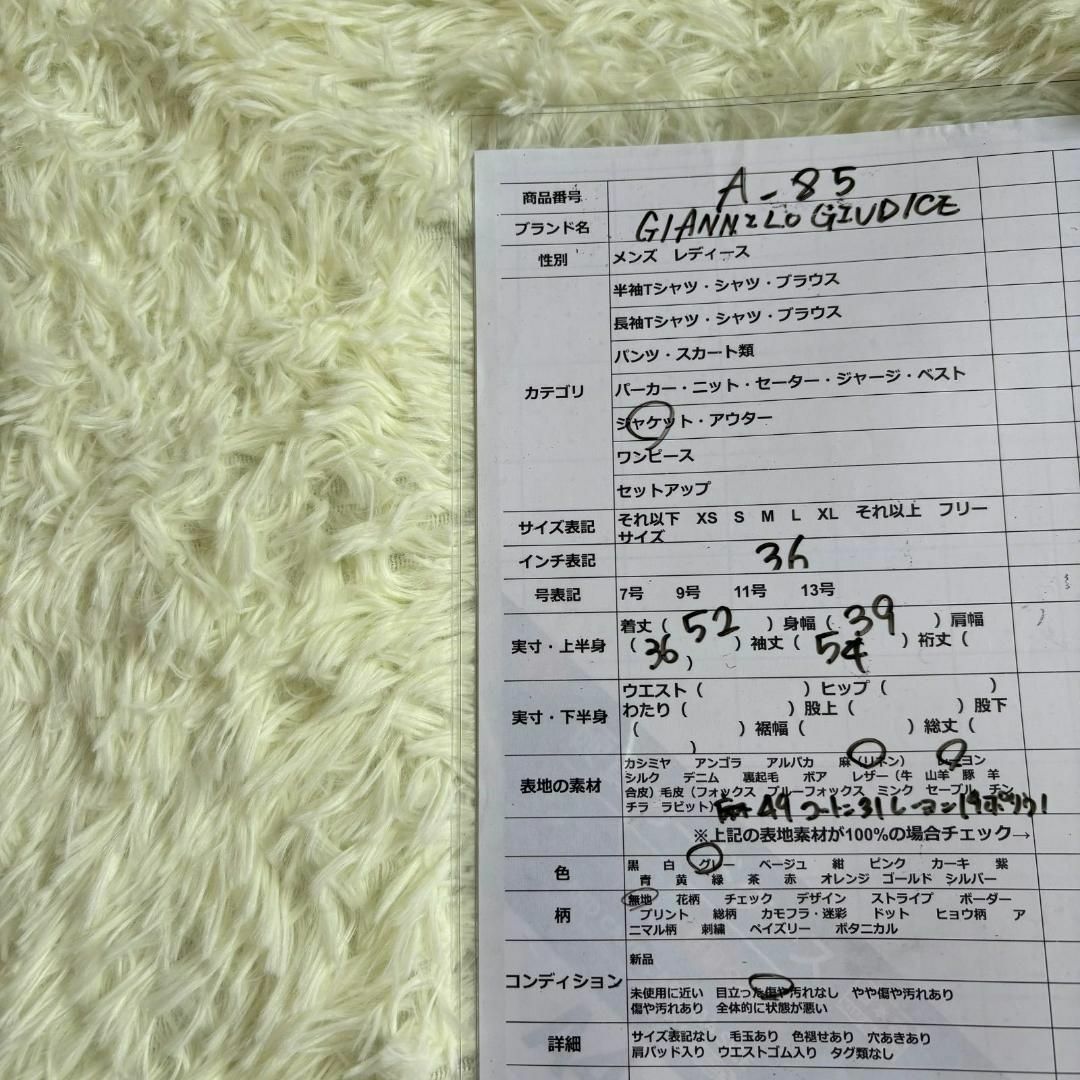 商品番号 A-85
ブランド名 GIANNI LO GIUDICE
性別 メンズ レディース
半袖Tシャツ・シャツ・ブラウス
長袖Tシャツ・シャツ・ブラウス
パンツ・スカート類
カテゴリ パーカー・ニット・セーター・ジャージ・ベスト
ジャケット・アウター
ワンピース
セットアップ
サイズ表記 それ以下 XS S M L XL それ以上 フリー
サイズ
インチ表記 36
号表記 7号 9号 11号 13号
着丈( 52 )身幅( 39 )肩幅
実寸・上半身 ( 36 )袖丈( 54 )裄丈(
)
ウエスト( )ヒップ( )
実寸・下半身 わたり( )股上( )股下
( )裾幅( )総丈(
)
カシミヤ アンゴラ アルパカ 麻(リネン) レーヨン
表地の素材 シルク デニム 裏起毛 ボア レザー(牛 山羊 豚 羊
合皮)毛皮(フォックス ブルーフォックス ミンク セーブル チン
チラ ラビット) 49 コットン31 レーヨン19 ポリウ1
※上記の表地素材が100%の場合チェック→
色 黒 白 グレー ベージュ 紺 ピンク カーキ 紫
青 黄 緑 茶 赤 オレンジ ゴールド シルバー
柄 無地 花柄 チェック デザイン ストライプ ボーダー
プリント 総柄 カモフラ・迷彩 ドット ヒョウ柄 ア
ニマル柄 刺繍 ペイズリー ボタニカル
新品
コンディション 未使用に近い 目立った傷や汚れなし やや傷や汚れあり
傷や汚れあり 全体的に状態が悪い
詳細 サイズ表記なし 毛玉あり 色褪せあり 穴あきあり
肩パッド入り ウエストゴム入り タグ類なし